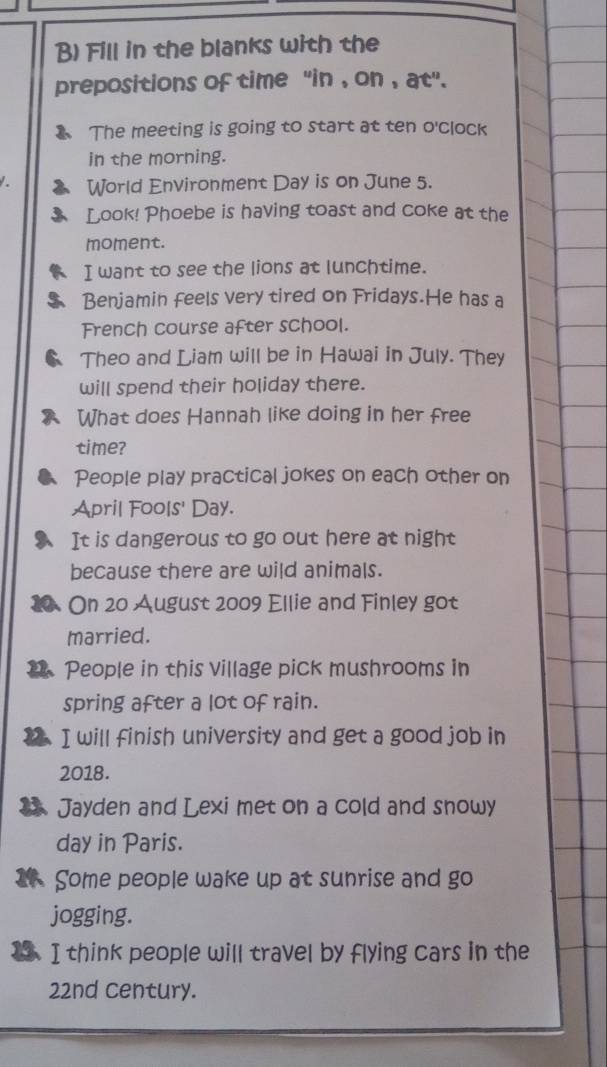 B) Fill in the blanks with the
prepositions of time "in , on , at".
1. The meeting is going to start at ten o'clock
in the morning.
y.
2. World Environment Day is on June 5.
3. Look! Phoebe is having toast and coke at the
moment.
4. I want to see the lions at lunchtime.
5. Benjamin feels very tired on Fridays.He has a
French course after school.
6. Theo and Liam will be in Hawai in July. They
will spend their holiday there.
7. What does Hannah like doing in her free
time?
8. People play practical jokes on each other on
April Fools' Day.
9. It is dangerous to go out here at night
because there are wild animals.
10. On 20 August 2009 Ellie and Finley got
married.
11. People in this village pick mushrooms in
spring after a lot of rain.
12. I will finish university and get a good job in
2018.
13. Jayden and Lexi met on a cold and snowy
day in Paris.
14. Some people wake up at sunrise and go
jogging.
15. I think people will travel by flying cars in the
22nd century.